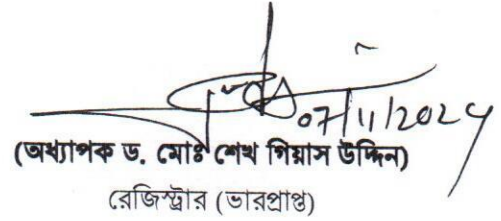 07/11/2024
(অধ্যাপক ড. মোঃ শেখ গিয়াস উদ্দিন)
রেজিস্ট্রার (ভারপ্রাপ্ত)